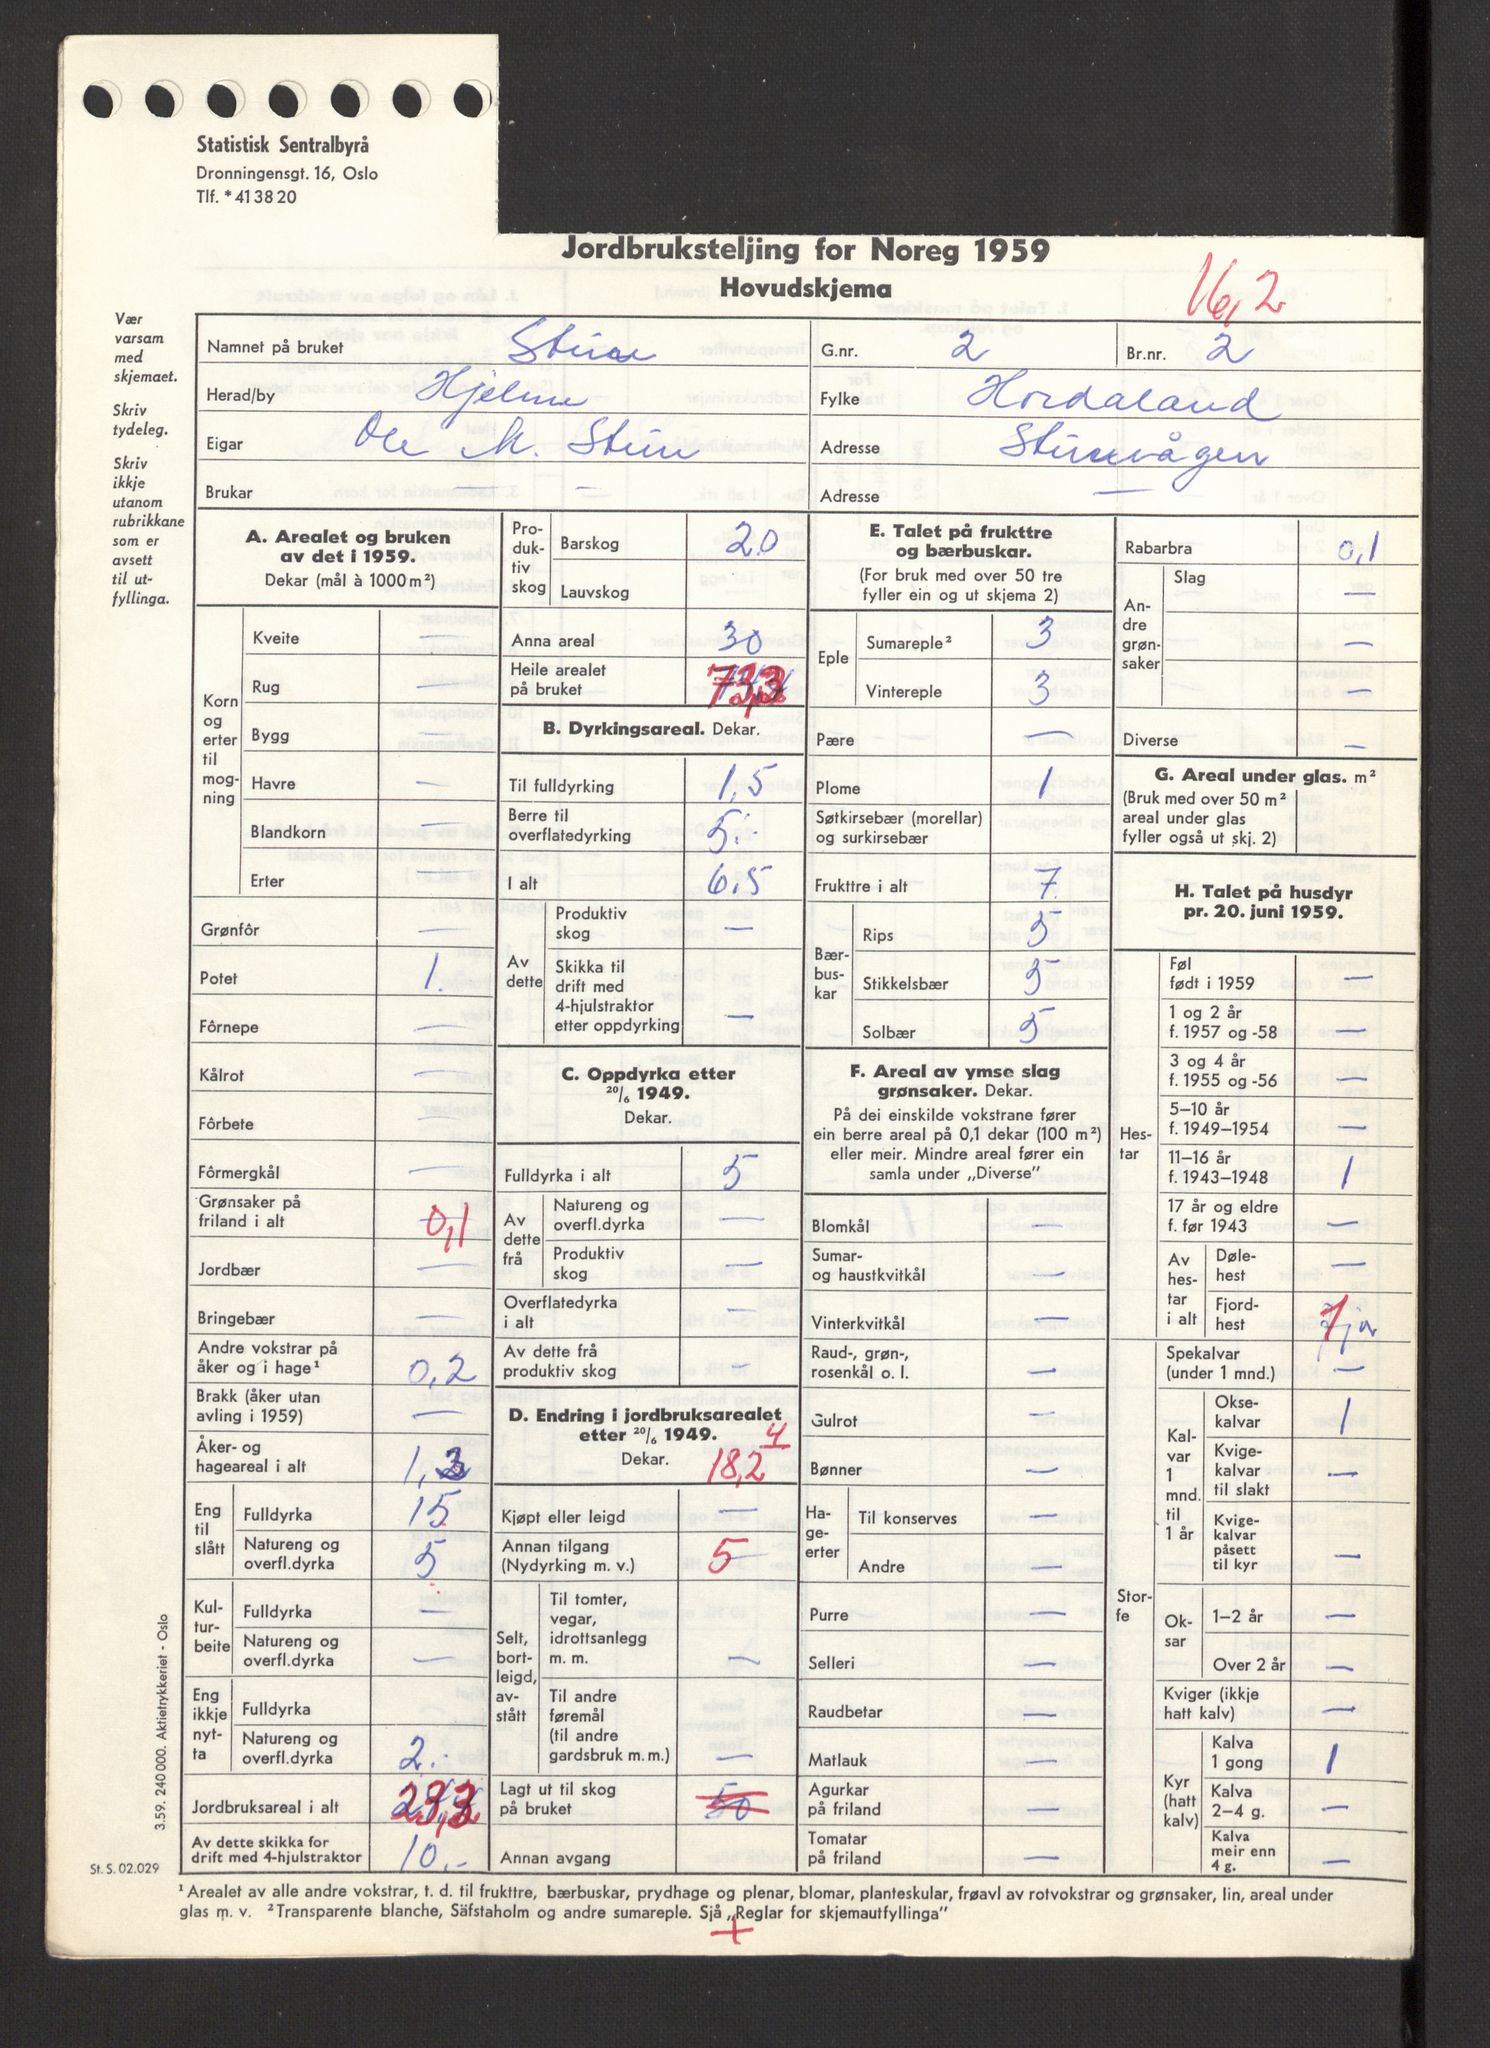 Statistisk Sentralbyrå
Dronningensgt. 16, Oslo
Tlf. * 41 38 20
Jordbruksteljing for Noreg 1959
Hovudskjema
16,2
Vær
varsam
med
skjemaet.
Skriv
tydeleg.
Skriv
ikkje
utanom
rubrikkane
som er
avsett
til ut-
fyllinga.
Namnet på bruket Sture G.nr. 2 Br.nr. 2
Herad/by Hjelme Fylke Hordaland
Eigar Ole M. Sture Adresse Sturevågen
Brukar — — Adresse —
A. Arealet og bruken
av det i 1959.
Dekar (mål à 1000 m²)
Korn
og
erter
til
mog-
ning
Kveite —
Rug —
Bygg —
Havre —
Blandkorn —
Erter
Grønfôr —
Potet 1.
Fôrnepe —
Kålrot —
Fôrbete —
Fôrmergkål —
Grønsaker på
friland i alt 0,1
Jordbær —
Bringebær —
Andre vokstrar på
åker og i hage¹ 0,2
Brakk (åker utan
avling i 1959) —
Åker- og
hageareal i alt 1,3
Eng
til
slått
Fulldyrka 15
Natureng og
overfl.dyrka 5
Kul-
tur-
beite
Fulldyrka —
Natureng og
overfl.dyrka —
Eng
ikkje
nyt-
ta
Fulldyrka
Natureng og
overfl.dyrka 2.-
Jordbruksareal i alt 23,3
Av dette skikka for
drift med 4-hjulstraktor 10.-
Pro-
duk-
tiv
skog
Barskog 20
Lauvskog
Anna areal 30
Heile arealet
på bruket
B. Dyrkingsareal. Dekar.
Til fulldyrking 1,5
Berre til
overflatedyrking 5.-
I alt 6,5
Av
dette
Produktiv
skog —
Skikka til
drift med
4-hjulstraktor
etter oppdyrking —
C. Oppdyrka etter
20/6 1949.
Dekar.
Fulldyrka i alt 5
Av
dette
frå
Natureng og
overfl.dyrka —
Produktiv
skog —
Overflatedyrka
i alt —
Av dette frå
produktiv skog —
D. Endring i jordbruksarealet
etter 20/6 1949. 4
Dekar. 18,2
Kjøpt eller leigd —
Annan tilgang
(Nydyrking m. v.) 5
Selt,
bort-
leigd,
av-
stått
Til tomter,
vegar,
idrottsanlegg
m. m. —
Til andre
føremål
(til andre
gardsbruk m. m.) —
Lagt ut til skog
på bruket 50
Annan avgang
E. Talet på frukttre
og bærbuskar.
(For bruk med over 50 tre
fyller ein og ut skjema 2)
Eple
Sumareple² 3
Vintereple 3
Pære —
Plome 1
Søtkirsebær (morellar)
og surkirsebær
Frukttre i alt 7
Bær-
bus-
kar
Rips 5
Stikkelsbær 5
Solbær 5
F. Areal av ymse slag
grønsaker. Dekar.
På dei einskilde vokstrane fører
ein berre areal på 0,1 dekar (100 m²)
eller meir. Mindre areal fører ein
samla under „Diverse”
Blomkål —
Sumar-
og haustkvitkål —
Vinterkvitkål —
Raud-, grøn-,
rosenkål o. l. —
Gulrot —
Bønner —
Ha-
ge-
erter
Til konserves —
Andre —
Purre —
Selleri —
Raudbetar —
Matlauk —
Agurkar
på friland —
Tomatar
på friland —
Rabarbra 0,1
An-
dre
grøn-
saker
Slag —
—
—
Diverse —
G. Areal under glas. m²
(Bruk med over 50 m²
areal under glas
fyller også ut skj. 2)
H. Talet på husdyr
pr. 20. juni 1959.
Hes-
tar
Føl
født i 1959 —
1 og 2 år
f. 1957 og -58 —
3 og 4 år
f. 1955 og -56 —
5–10 år
f. 1949–1954 —
11–16 år
f. 1943–1948 1
17 år og eldre
f. før 1943 —
Av
hes-
tar
i alt
Døle-
hest —
Fjord-
hest 1
Stor-
fe
Spekalvar
(under 1 mnd.) —
Kal-
var
1
mnd.
til
1 år
Okse-
kalvar 1
Kvige-
kalvar
til slakt —
Kvige-
kalvar
påsett
til kyr —
Ok-
sar
1–2 år —
Over 2 år —
Kviger (ikkje
hatt kalv) —
Kyr
(hatt
kalv)
Kalva
1 gong 1
Kalva
2–4 g. —
Kalva
meir enn
4 g. —
¹ Arealet av alle andre vokstrar, t. d. til frukttre, bærbuskar, prydhage og plenar, blomar, planteskular, frøavl av rotvokstrar og grønsaker, lin, areal under
glas m. v. ² Transparente blanche, Säfstaholm og andre sumareple. Sjå „Reglar for skjemautfyllinga”
+
3.59. 240 000. Aktietrykkeriet - Oslo
St. S. 02.029